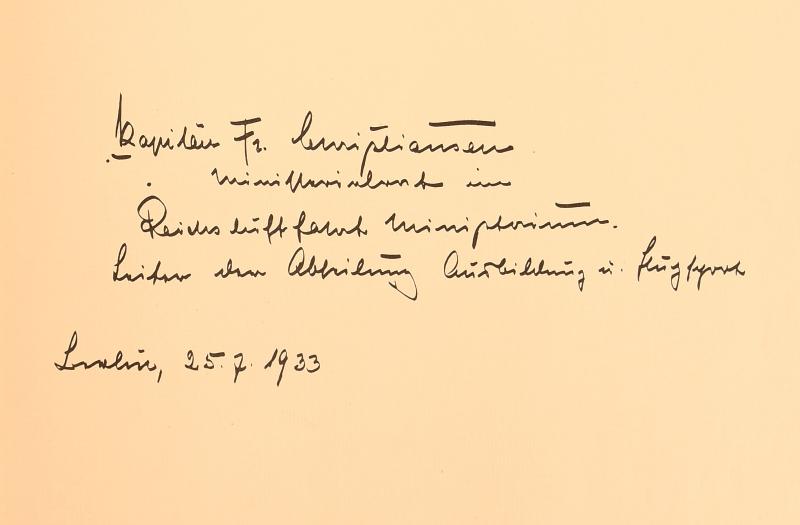 Kapitän Fr. Christiansen
Ministerialrat im
Reichsluftfahrt Ministerium.
Leiter der Abteilung Ausbildung u. Flugsport
Berlin, 25.7.1933